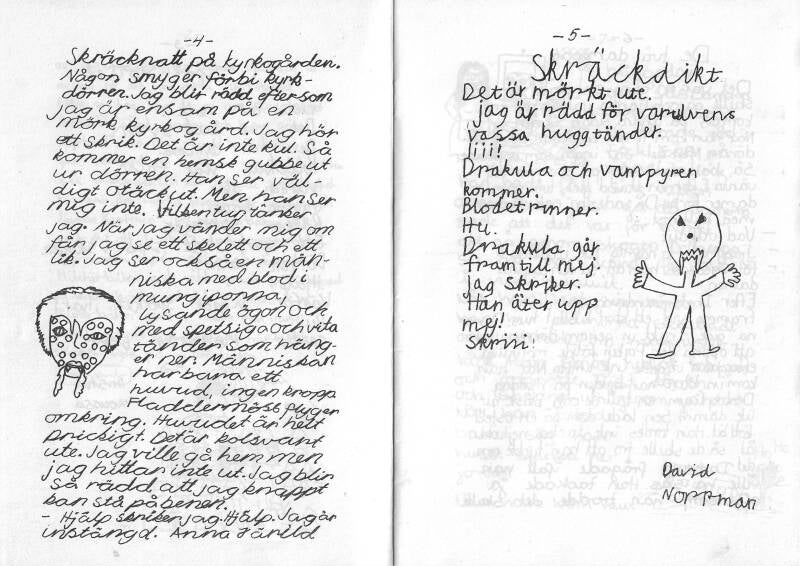 -4-
Skräcknatt på kyrkogården.
Någon smyger förbi kyrk-
dörren. Jag blir rädd eftersom
jag är ensam på en
mörk kyrkogård. Jag hör
ett skrik. Det är inte kul. Så
kommer en hemsk gubbe ut
ur dörren. Han ser väl-
digt otäck ut. Men han ser
mig inte. Vilken tur tänker
jag. När jag vänder mig om
får jag se ett skelett och ett
lik. Jag ser också en män-
niska med blod i
mungiporna,
lysande ögon och
med spetsiga och vita
tänder som häng-
er ner. Människan
har bara ett
huvud, ingen kropp
Fladdermöss flyger
omkring. Huvudet är helt
prickigt. Det är kolsvart
ute. Jag ville gå hem men
jag hittar inte ut. Jag blir
så rädd att jag knappt
kan stå på benen.
- Hjälp skriker jag. Hjälp. Jag är
instängd. Anna
-5-
Skräckdikt
Det är mörkt ute.
jag är rädd för varulvens
vassa huggtänder.
Iiii!
Drakula och vampyren
kommer.
Blodet rinner.
Hu.
Drakula går
fram till mej.
Jag skriker.
Han äter upp
mej!
Skriii!
David
Noppman